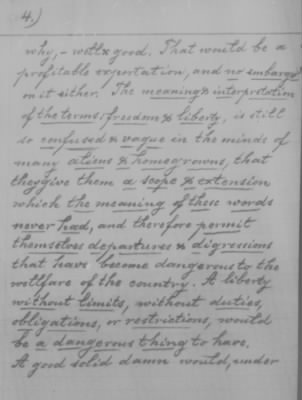 4.)
why, – well & good. That would be a
profitable exportation, and no embargo
on it either. The meaning & interpretation
of the terms: freedom & liberty, is still
so confused & vague in the minds of
many aliens & homegrowns, that
they give them a scope & extension
which the meaning of these words
never had, and therefore permit
themselves departures & digressions
that have become dangerous to the
wellfare of the country. A liberty
without limits, without duties,
obligations, or restrictions, would
be a dangerous thing to have.
A good solid damn would, under